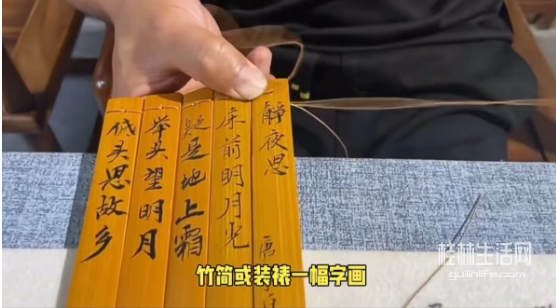 静夜思 唐
床前明月光
疑是地上霜
举头望明月
低头思故乡
竹简或装裱一幅字画
桂林生活网
guilinlife.com